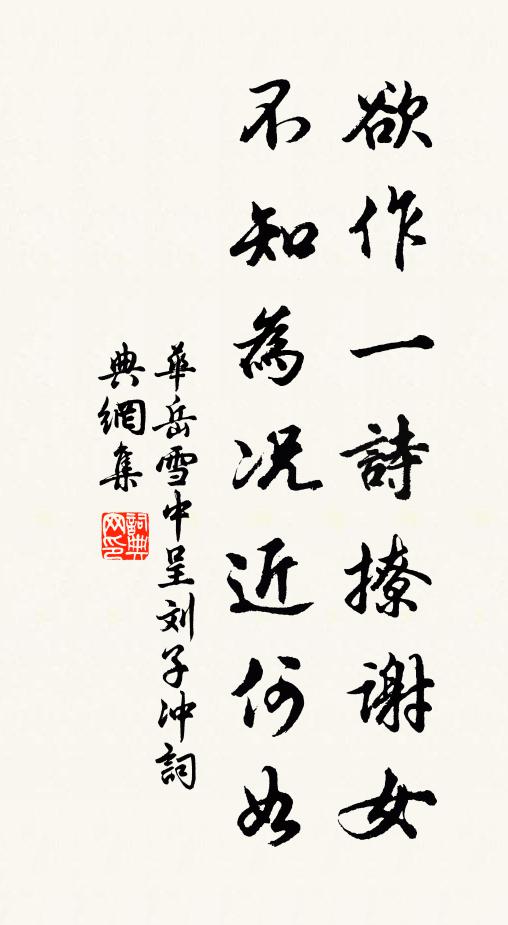 欲作一詩撩谢女
不知為况近何如
華岳雪中呈刘子冲詞
典網集
詞典网印